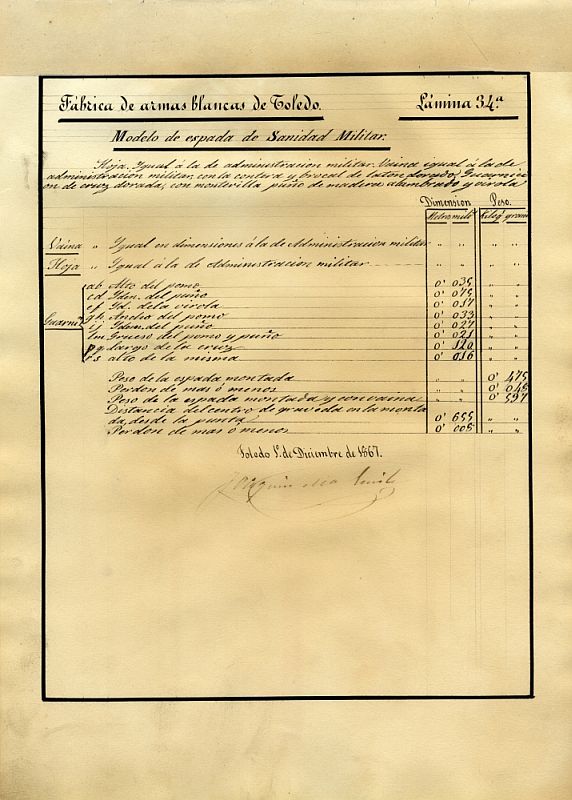 Fábrica de armas blancas de Toledo. Lámina 34.ª
Modelo de espada de Sanidad Militar.
Hoja. Igual á la de administracion militar. Vaina igual á la de
administracion militar, con la contera y brocal de laton dorado; Guarnici
on de cruz dorada, con monterilla puño de madera alambrado y virola
Dimension Peso.
Metro mili. Kilog. gramo
Vaina " Igual en dimensiones á la de Administracion militar " " " "
Hoja " Igual á la de Administracion militar " " " "
Guarn.n
ab Alto del pomo 0' 035 " "
cd Idem. del puño 0' 075 " "
ef Id. de la virola 0' 017 " "
gh Ancho del pomo 0' 033 " "
ij Idem. del puño 0' 027 " "
lm Grueso del pomo y puño 0' 021 " "
pq largo de la cruz 0' 120 " "
rs alto de la misma 0' 016 " "
Peso de la espada montada " " 0' 475
Perdon de mas ó menos " " 0' 048
Peso de la espada montada y con vaina " " 0' 597
Distancia del centro de gravedad en la monta
da, desde la punta 0' 655 " "
Perdon de mas ó menos 0' 005 " "
Toledo 1.º de Diciembre de 1867.
Joaquin